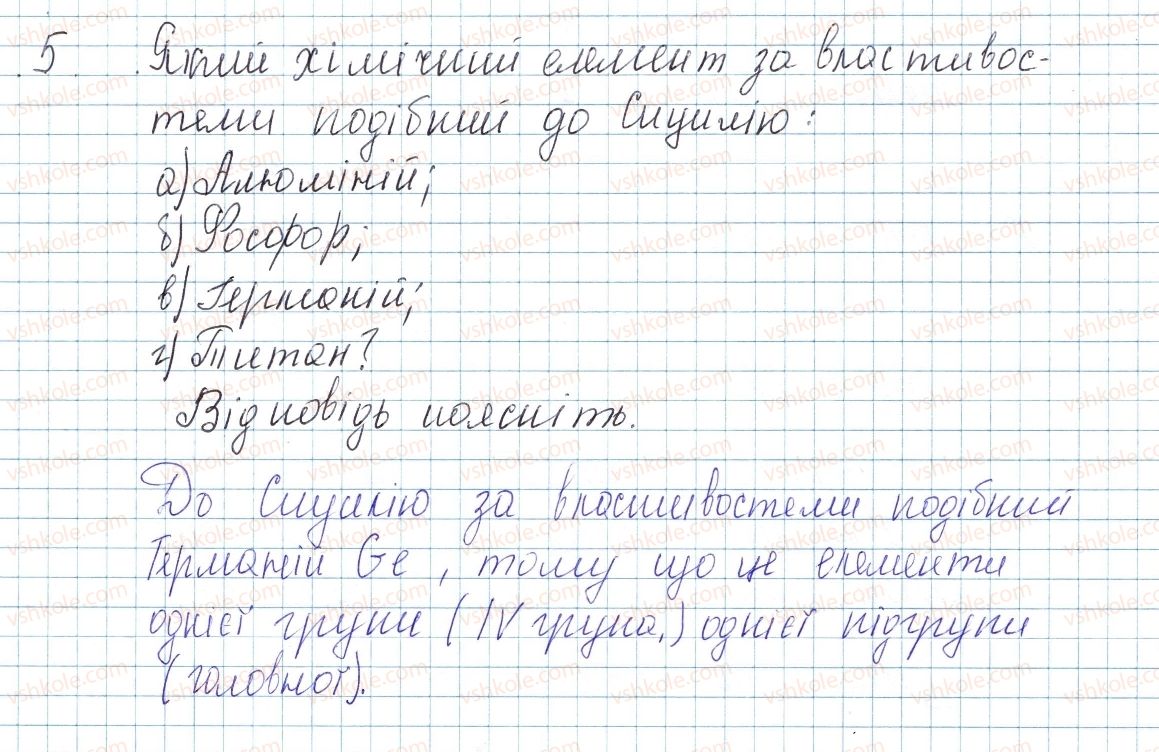 5. Який хімічний елемент за властивос-
теми подібний до Сицилію:
а) Алюміній;
б) Фосфор;
в) Германій;
г) Титан?
Відповідь поясніть.
До Сицилію за властивостеми подібний
Германій Ge, тому що це елементи
однієї групи (IV група,) однієї підгрупи
(головної).